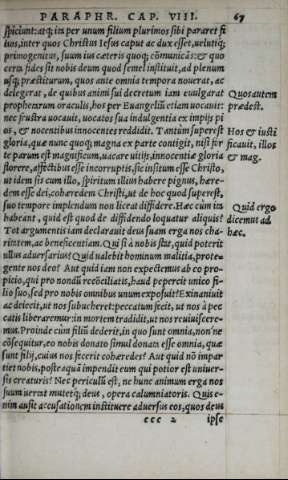 PARAPHR. CAP. VIII. 67
spiciunt: atq; ita per unum filium plurimos sibi pararet fi
lios, inter quos Christus Iesus caput ac dux esset, uelutiq;
primogenitus, suum ius cæteris quoq; cõmunicãs: & quo
certa fides sit nobis deum quod semel instituit, ad plenum
usq; præstiturum, quos ante omnia tempora nouerat, ac
delegerat, de quibus animi sui decretum iam euulgarat
prophetarum oraculis, hos per Euangeliũ etiam uocauit:
nec frustra uocauit, uocatos sua indulgentia ex impijs pi
os, & nocentibus innocentes reddidit. Tantùm superest
gloria, quæ nunc quoq; magna ex parte contigit, nisi for
te parum est magnificum, uacare uitijs, innocentiæ gloria
florere, affectibus esse incorruptis, sic insitum esse Christo,
ut idem sit cum illo, spiritum illius habere pignus, hære-
dem esse dei, cohæredem Christi, ut de hoc quod superest,
suo tempore implendum non liceat diffidere. Hæc cùm ita
habeant, quid est quod de diffidendo loquatur aliquis?
Tot argumentis iam declarauit deus suam erga nos cha-
ritatem, ac beneficentiam. Qui si à nobis stat, quid poterit
ullus aduersarius? Quid ualebit hominum malitia, prote-
gente nos deo? Aut quid iam non expectemus ab eo pro-
picio, qui pro nondũ recõciliatis, haud pepercit unico fi-
lio suo, sed pro nobis omnibus unum exposuit? Exinaniuit
ac deiecit, ut nos subueheret: peccatum fecit, ut nos à pec
catis liberaremur: in mortem tradidit, ut nos reuiuiscere-
mus. Proinde cùm filiũ dederit, in quo sunt omnia, non'ne
cõsequitur, eo nobis donato simul donata esse omnia, quæ
sunt filij, cuius nos fecerit cohæredes? Aut quid nõ impar
tiet nobis, posteaquã impendit eum qui potior est uniuer-
sis creaturis? Nec periculũ est, ne hunc animum erga nos
suum uerrat mutetq́; deus, opera calumniatoris. Quis e-
nim ausit accusationem instituere aduersus eos, quos deus
ccc 2 ipse
Quos autem
prædest.
Hos & iusti
ficauit, illos
& mag.
Quid ergo
dicemus ad
hæc.